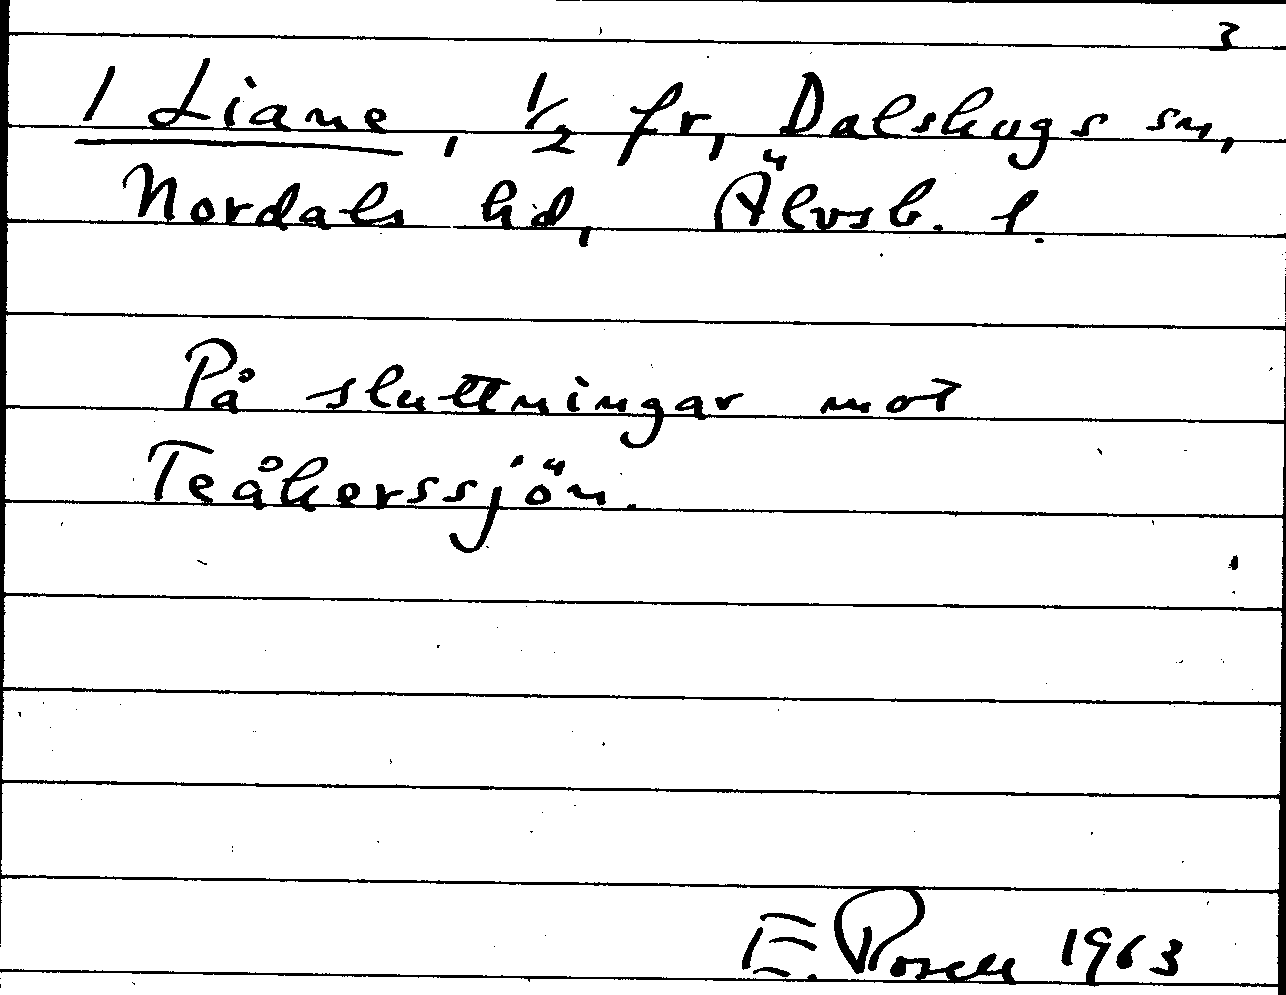 3
1 Liane, 1/2 fr, Dalskogs sn,
Nordals hd, Älvsb. l.
På sluttningar mot
Teåkerssjön.
E. 1963